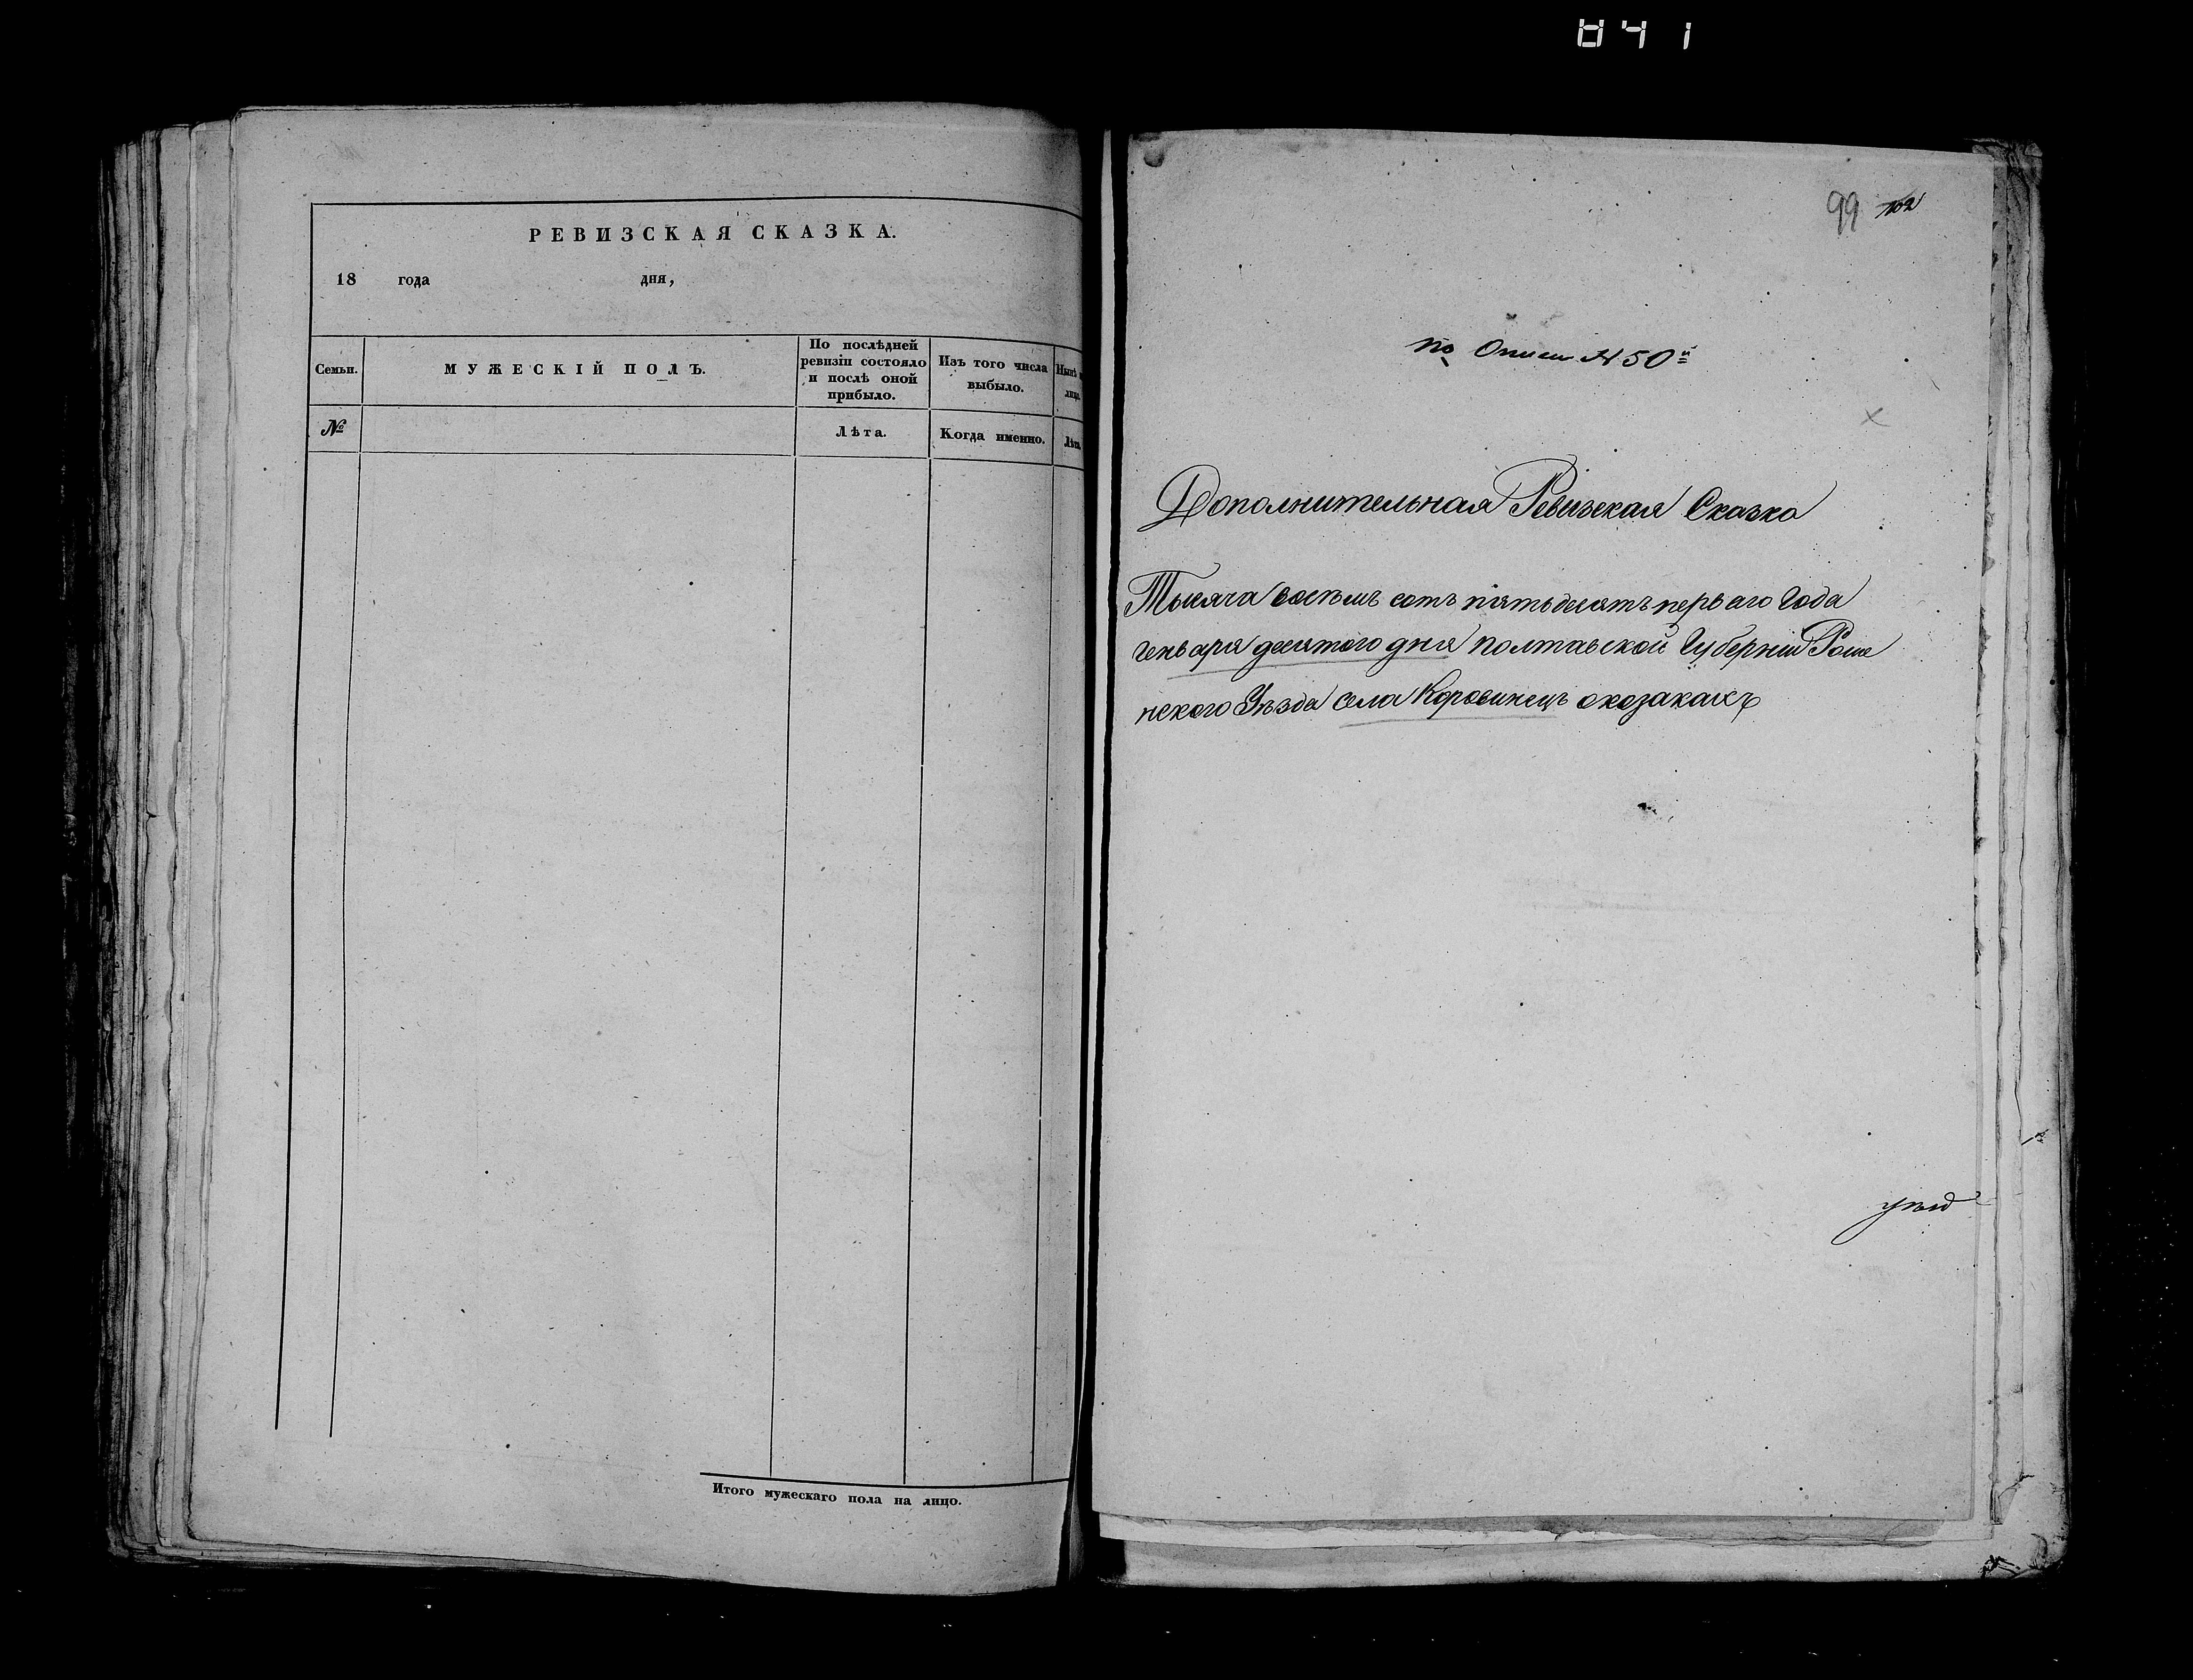 841
РЕВИЗСКАЯ СКАЗКА.
18 года дня,
Семьи.
МУЖЕСКІЙ ПОЛЪ.
По послѣдней ревизіи состояло и послѣ оной прибыло.
Изъ того числа выбыло.
№
Лѣта.
Когда именно.
Итого мужескаго пола на лицо.
99 102
по Описи № 50й
Дополнительная Ревизская Сказка
Тысяча восемь сотъ пятьдесятъ перваго Года
Генваря десятого дня Полтавской Губерніи Роме
нского Уѣзда села Коровинецъ оказакахъ